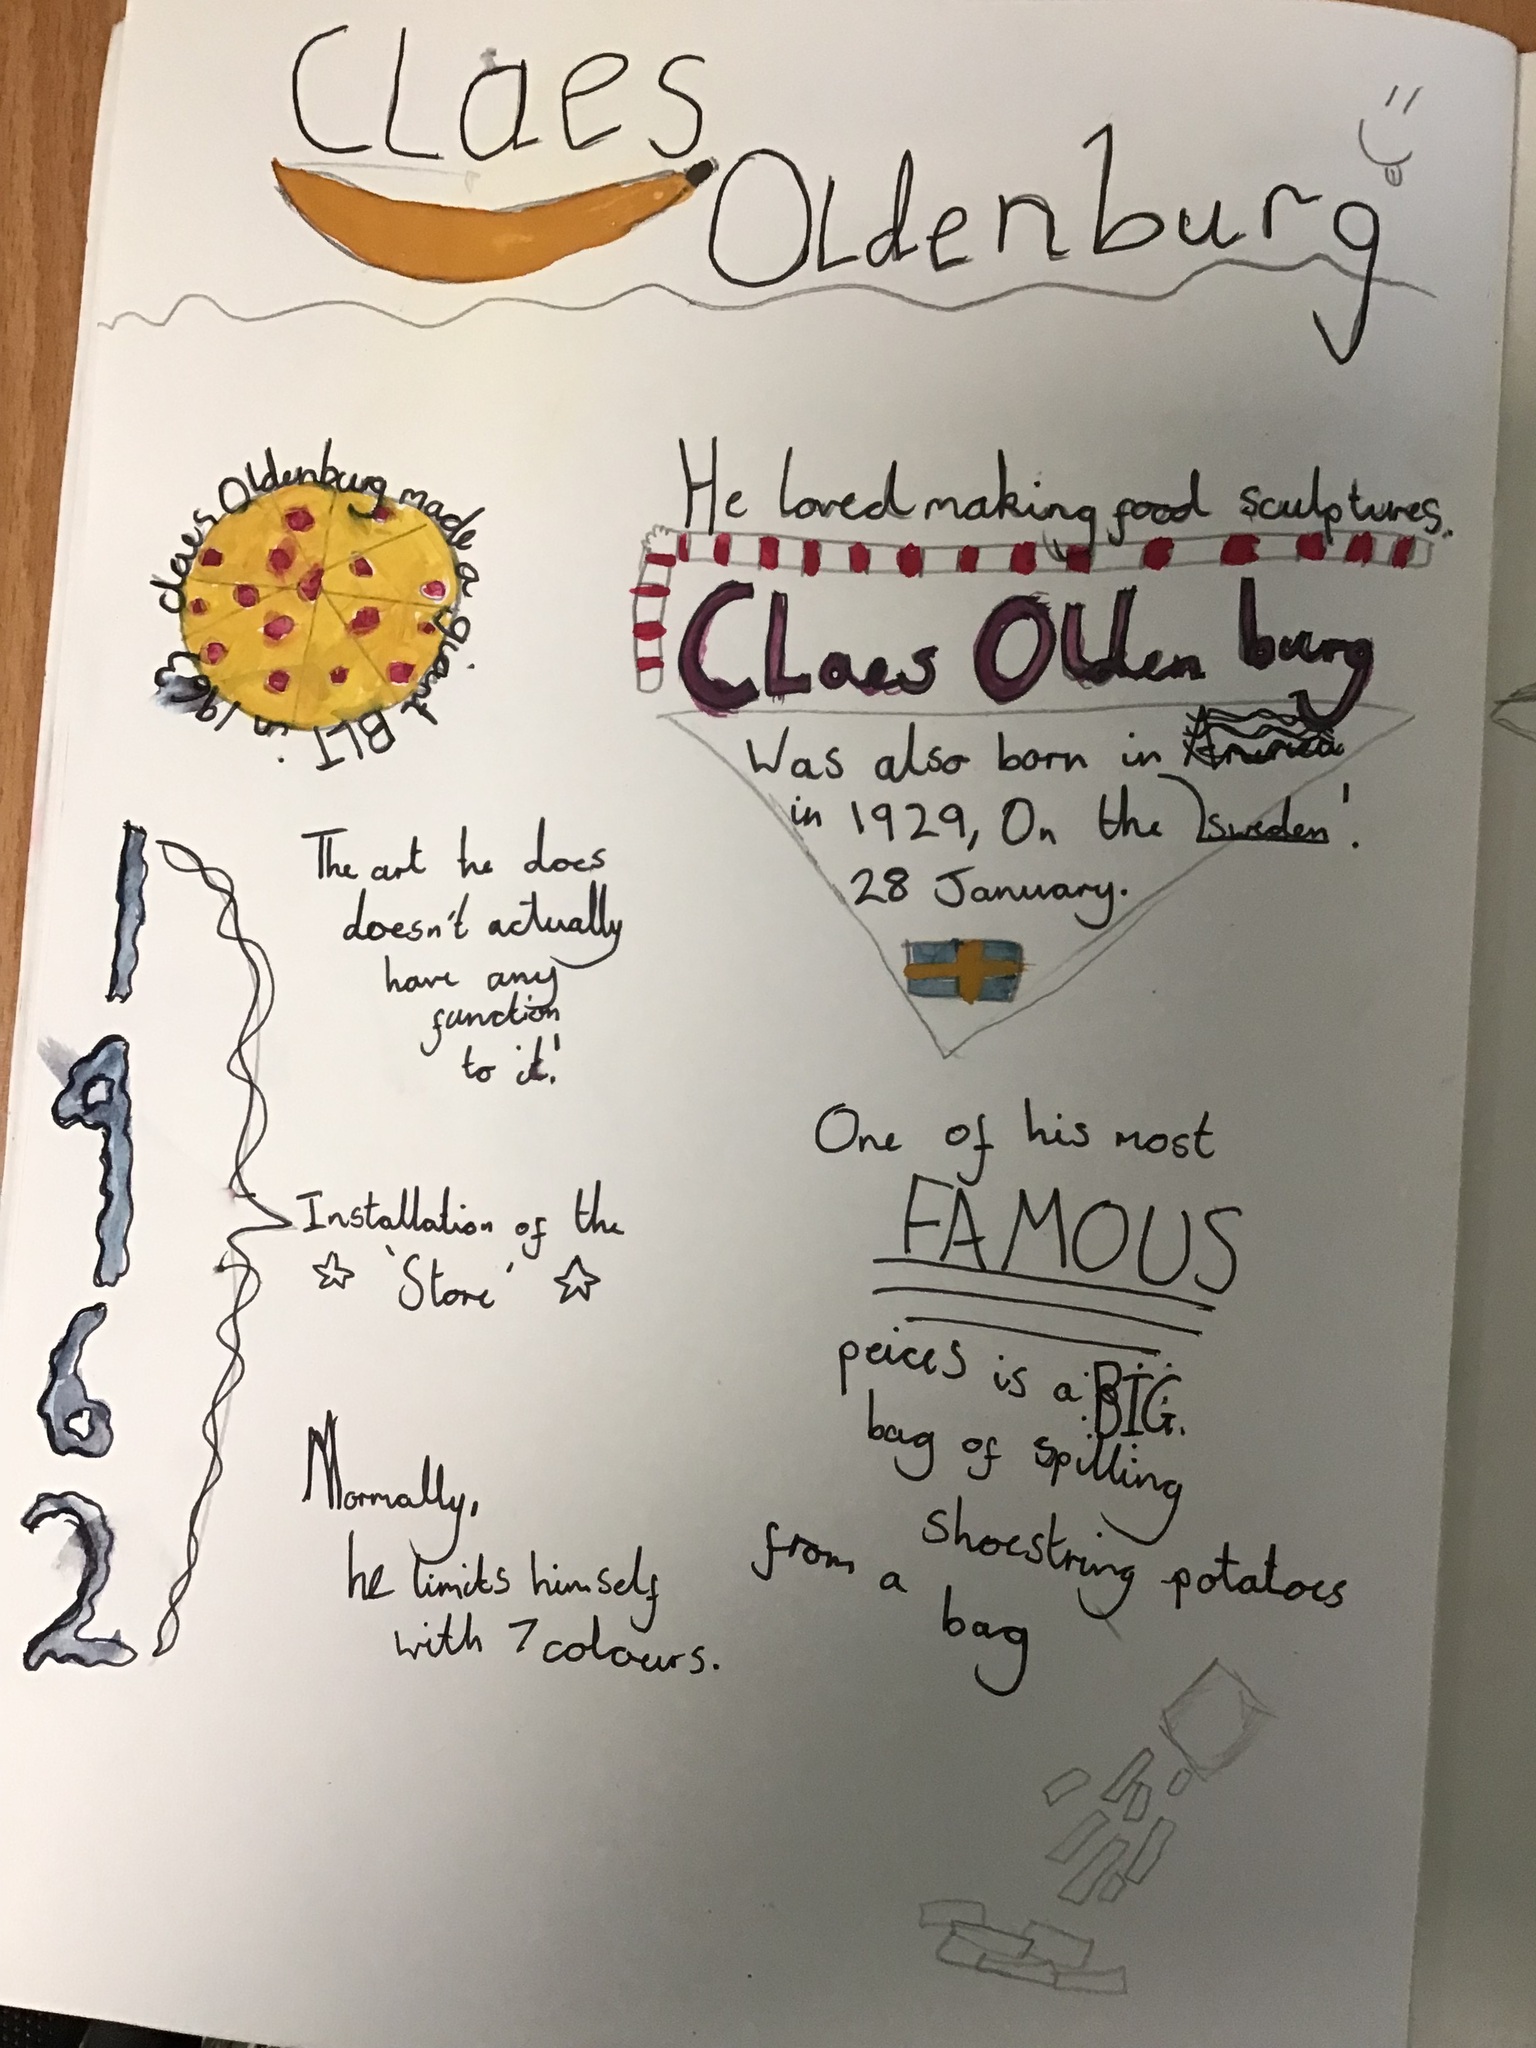 CLaes
OLdenburg
claes Oldenburg made a giant BLT in 1963
He loved making food sculptures.
CLaes OLdenburg
Was also born in
in 1929, On the sweden!.
28 January.
1962
The art he does
doesn't actually
have any
function
to it!
Installation of the
'Store'
Normally,
he limits himself
with 7 colours.
One of his most
FAMOUS
peices is a BIG.
bag of spilling
shoestring potatoes
from a
bag